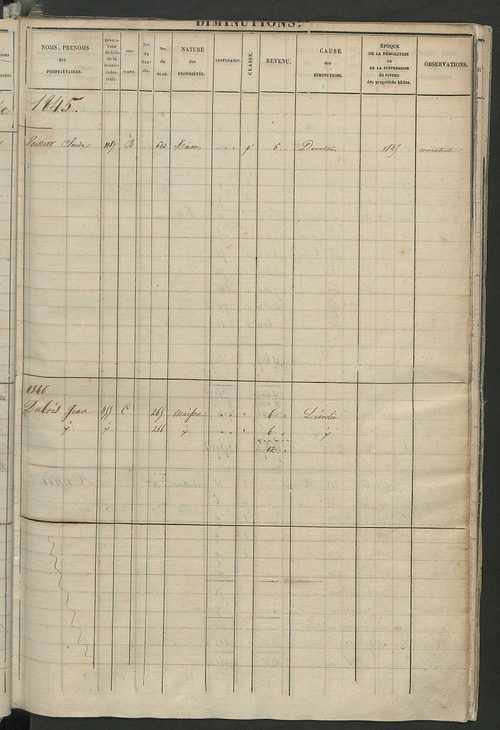 DIMINUTIONS.
NOMS, PRENOMS des PROPRIÉTAIRES. INDICATION du folio de la matrice cadastrale. SECTIONS. Nos. du PLAN. NATURE des PROPRIÉTÉS. CONTENANCE. CLASSE. REVENU. CAUSE des DIMINUTIONS. ÉPOQUE DE LA DÉMOLITION ou DE LA SUPPRESSION du revenu des propriétés bâties. OBSERVATIONS.
1845.
Claude B Maison 6 Démolition 1845
1846
Dubois Jean C 265 maison 6
266 6
12